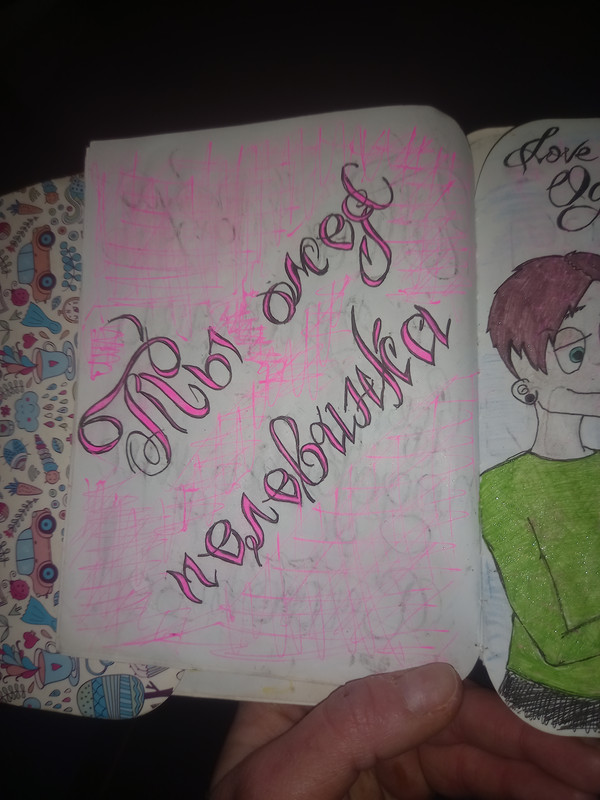 Ты моя
половинка
Love